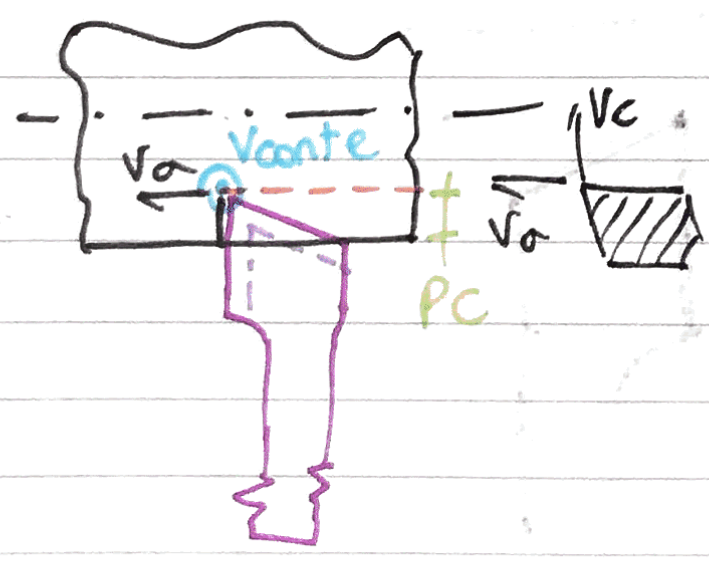 Vc
Vconte
Va
Va
PC